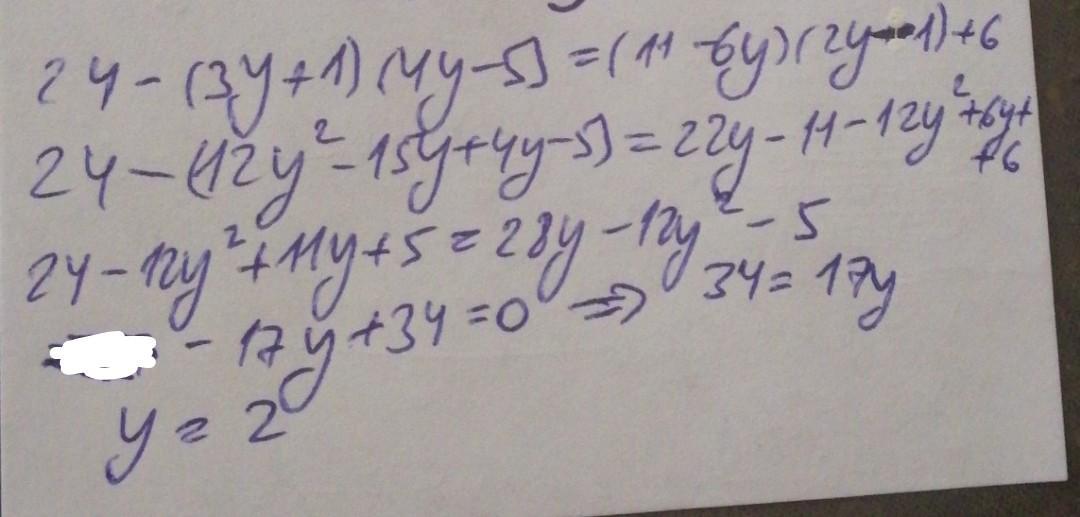 24 - (3y+1)(4y-5) = (11-6y)(2y-1)+6
24 - (12y² - 15y + 4y - 5) = 22y - 11 - 12y² + 6y +
+6
24 - 12y² + 11y + 5 = 28y - 12y² - 5
- 17y + 34 = 0 ⇒ 34 = 17y
y = 2